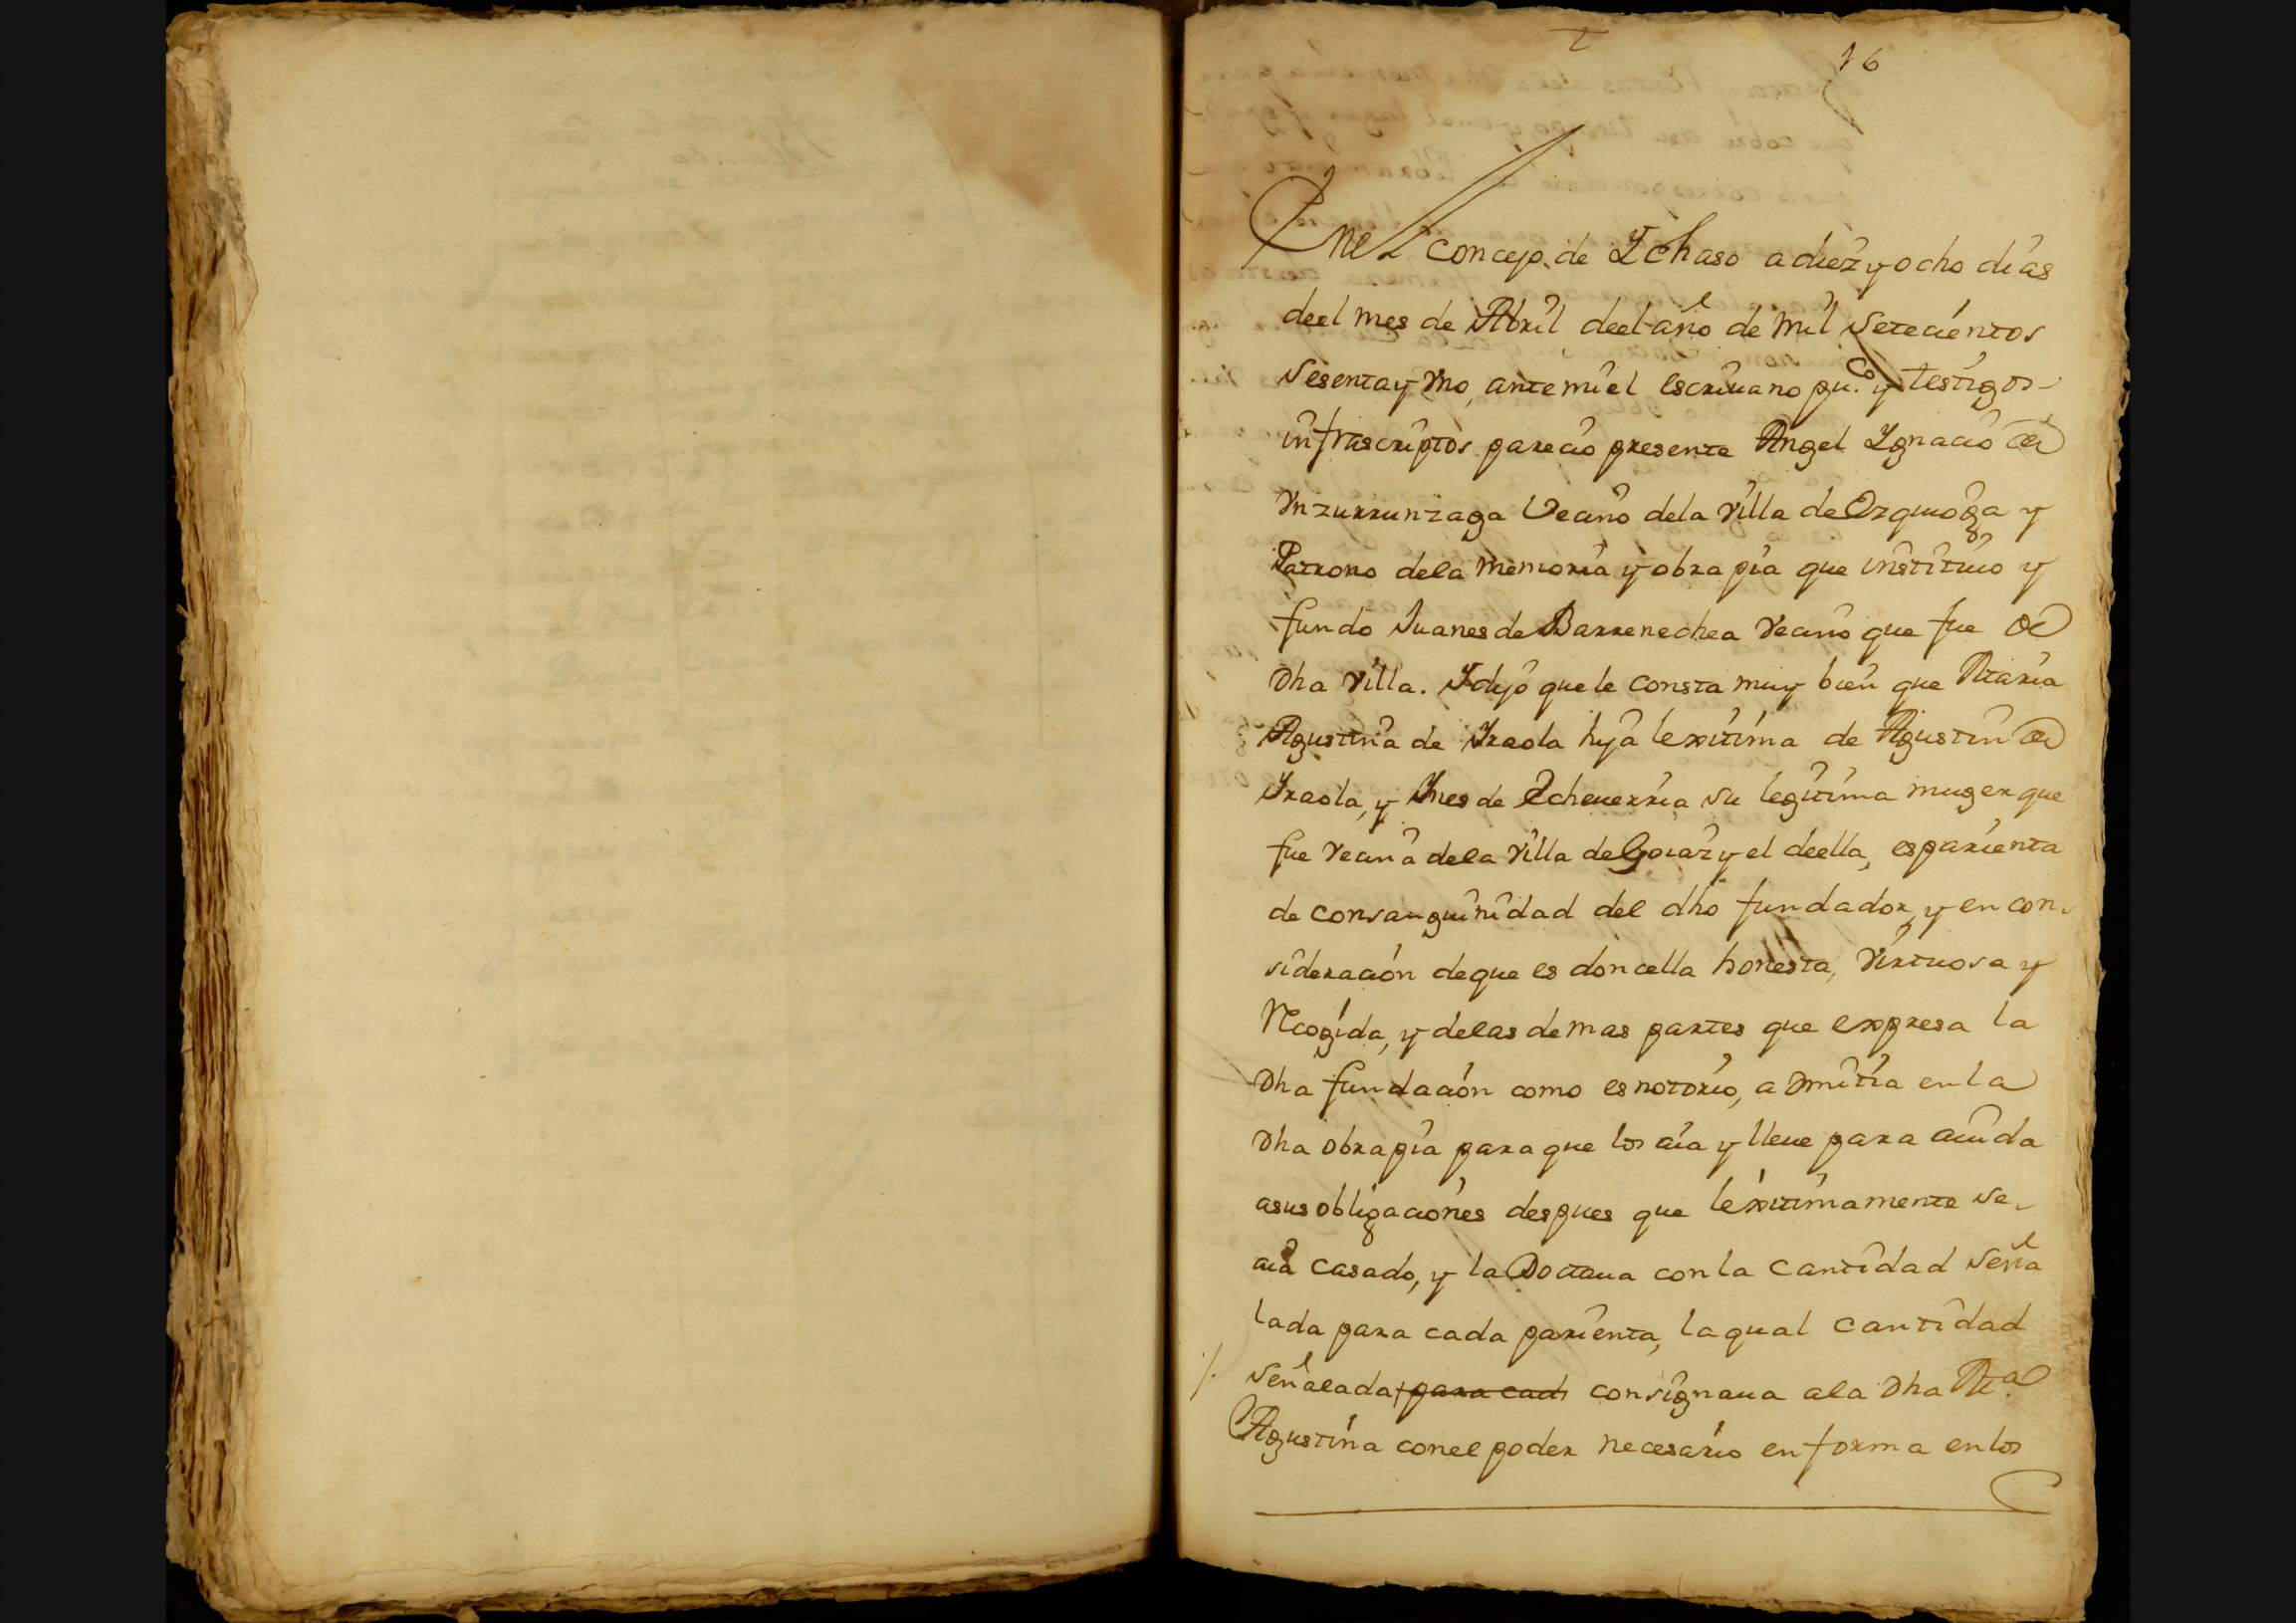 16
Enel concejo de Ychaso a diez y ocho dias
deel mes de Abril deel año de mil setecientos
sesenta y Vno, ante mi el escriuano pu.co y testigos
infrascriptos parecio presente Angel Ygnacio de
Ynzurrunzaga Vecino dela Villa de Ezquioga y
Patrono dela memoria y obra pia que instituio y
fundo Juanes de Barrenechea Vecino que fue de
Dha Villa. Y dijo que le consta muy bien que Maria
Agustina de Yraola hija lexitima de Agustin de
Yraola, y Ynes de Echeuerria su legitima muger que
fue Vecina dela Villa de Goiaz y el deella, es parienta
de consanguinidad del dho fundador, y en con
sideracion de que es doncella honesta, Virtuosa y
Recogida, y delas demas partes que expresa la
Dha fundacion como es notorio, admitia en la
Dha obra pia para que los aia y lleue para aiuda
asus obligaciones despues que lexitimamente se
aia casado, y la Doctaua con la cantidad seña
lada para cada parienta, la qual cantidad
señalada para cad consignaua ala Dha Ma.
Agustina con el poder necesario en forma en los